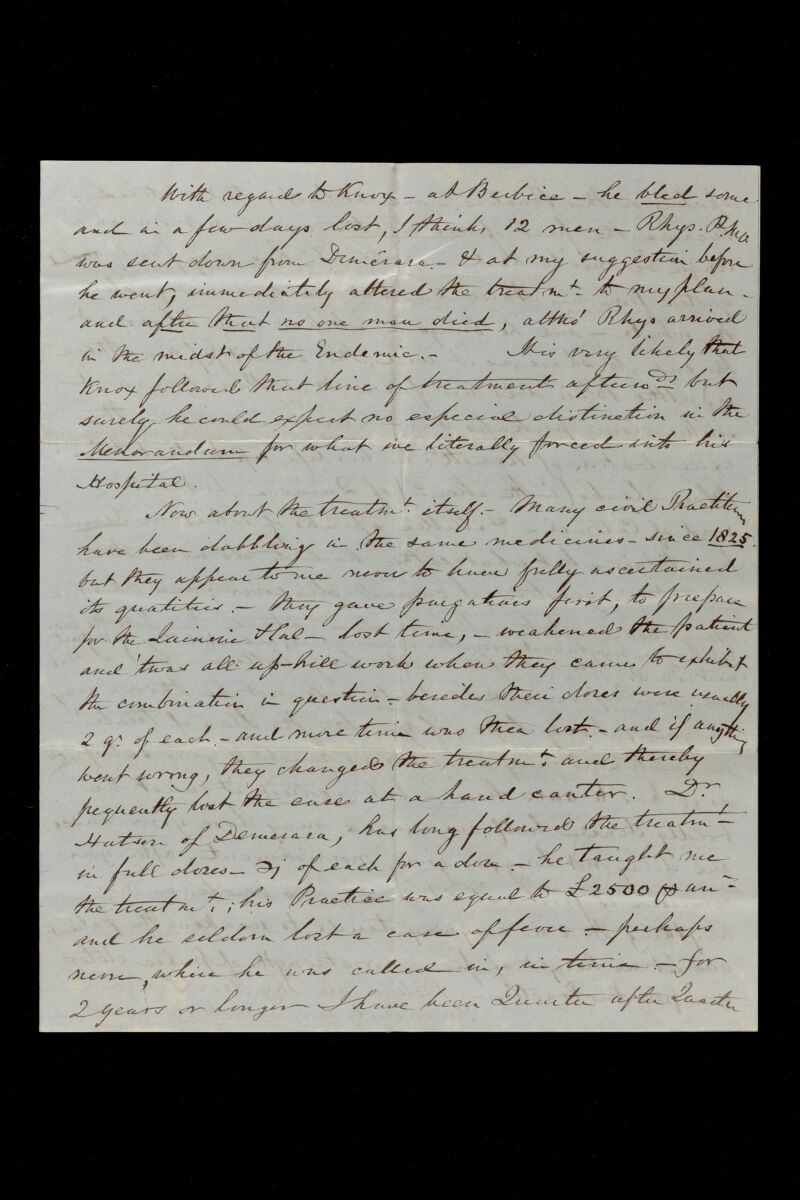 With regard to Knox – at Berbice – he bled some
and in a few days lost, I think, 12 men – Rhys. P.M.O.
was sent down from Demerara. – & at my suggestion before
he went, immediately altered the treatmt. to my plan –
and after that no one man died, altho' Rhys arrived
in the midst of the Endemic. – It is very likely that
Knox followed that line of treatment afterwds. but
surely he could expect no especial distinction in the
Memorandum for what we literally forced into his
Hospital.
Now about the treatmt. itself. – Many civil Practitrs
have been dabbling in the same medicines – since 1825.
but they appear to me never to have fully ascertained
its qualities. – they gave purgatives first, to prepare
for the Quinine & Cal – lost time, – weakened the patient
and 'twas all up-hill work when they came to exhibit
the combination in question – besides their doses were usually
2 gr. of each. – and more time was then lost. – and if anything
went wrong, they changed the treatmt. and thereby
frequently lost the case at a hand canter. Dr.
Hutson of Demerara, has long followed the treatmt –
in full doses – ℈j of each for a dose. – he taught me
the treatmt.; his Practice was equal to £2500 p ann –
and he seldom lost a case of fever – perhaps
never, where he was called in, in time. – for
2 years or longer I have been Quarter after Quarter